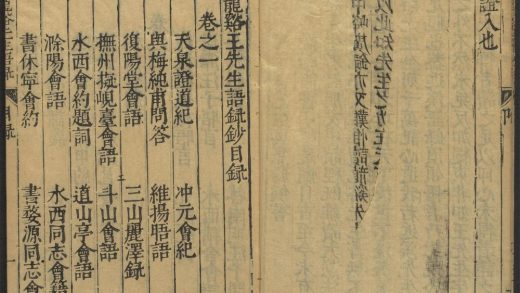 證入也
以此知先生之
龍谿王先生語錄鈔目錄
卷之一
天泉證道紀 冲元會紀
與梅純甫問答 維揚晤語
復陽堂會語 三山麗澤錄
撫州擬峴臺會語 斗山會語
水西會約題詞 道山亭會語
滁陽會語 水西同志會籍
書休寧會約 書婺源同志會
目錄 一